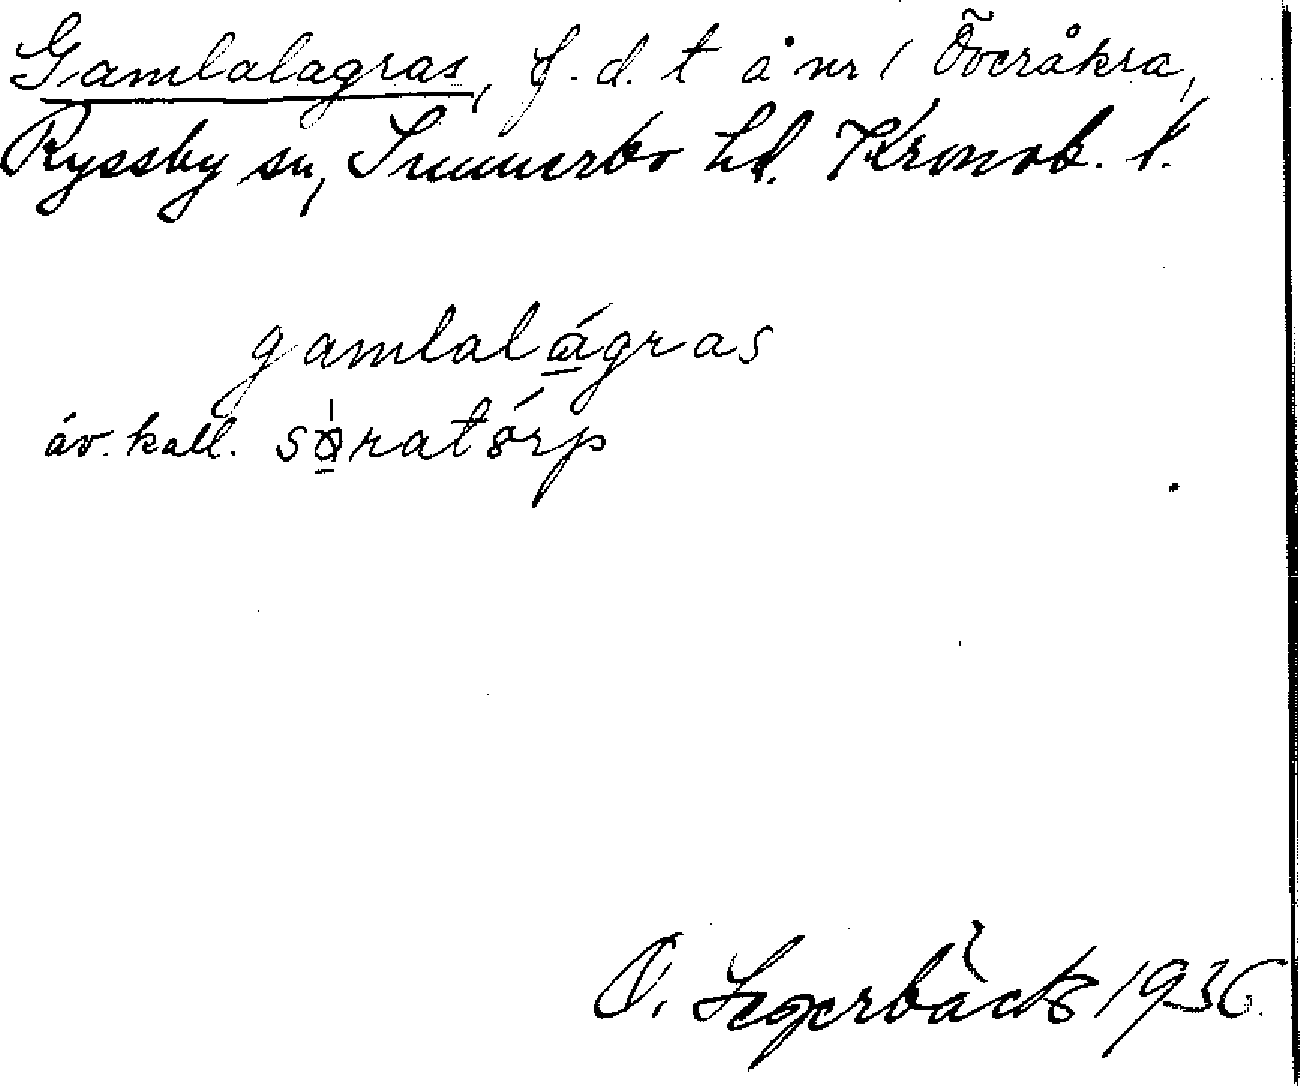 Gamlalagras, f.d. t å nr 1 Överåkra,
Ryssby sn, Sunnerbo hd. Kronob. l.
gamlalágras
äv. kall. söratórp
O. Segerbäck 1936.